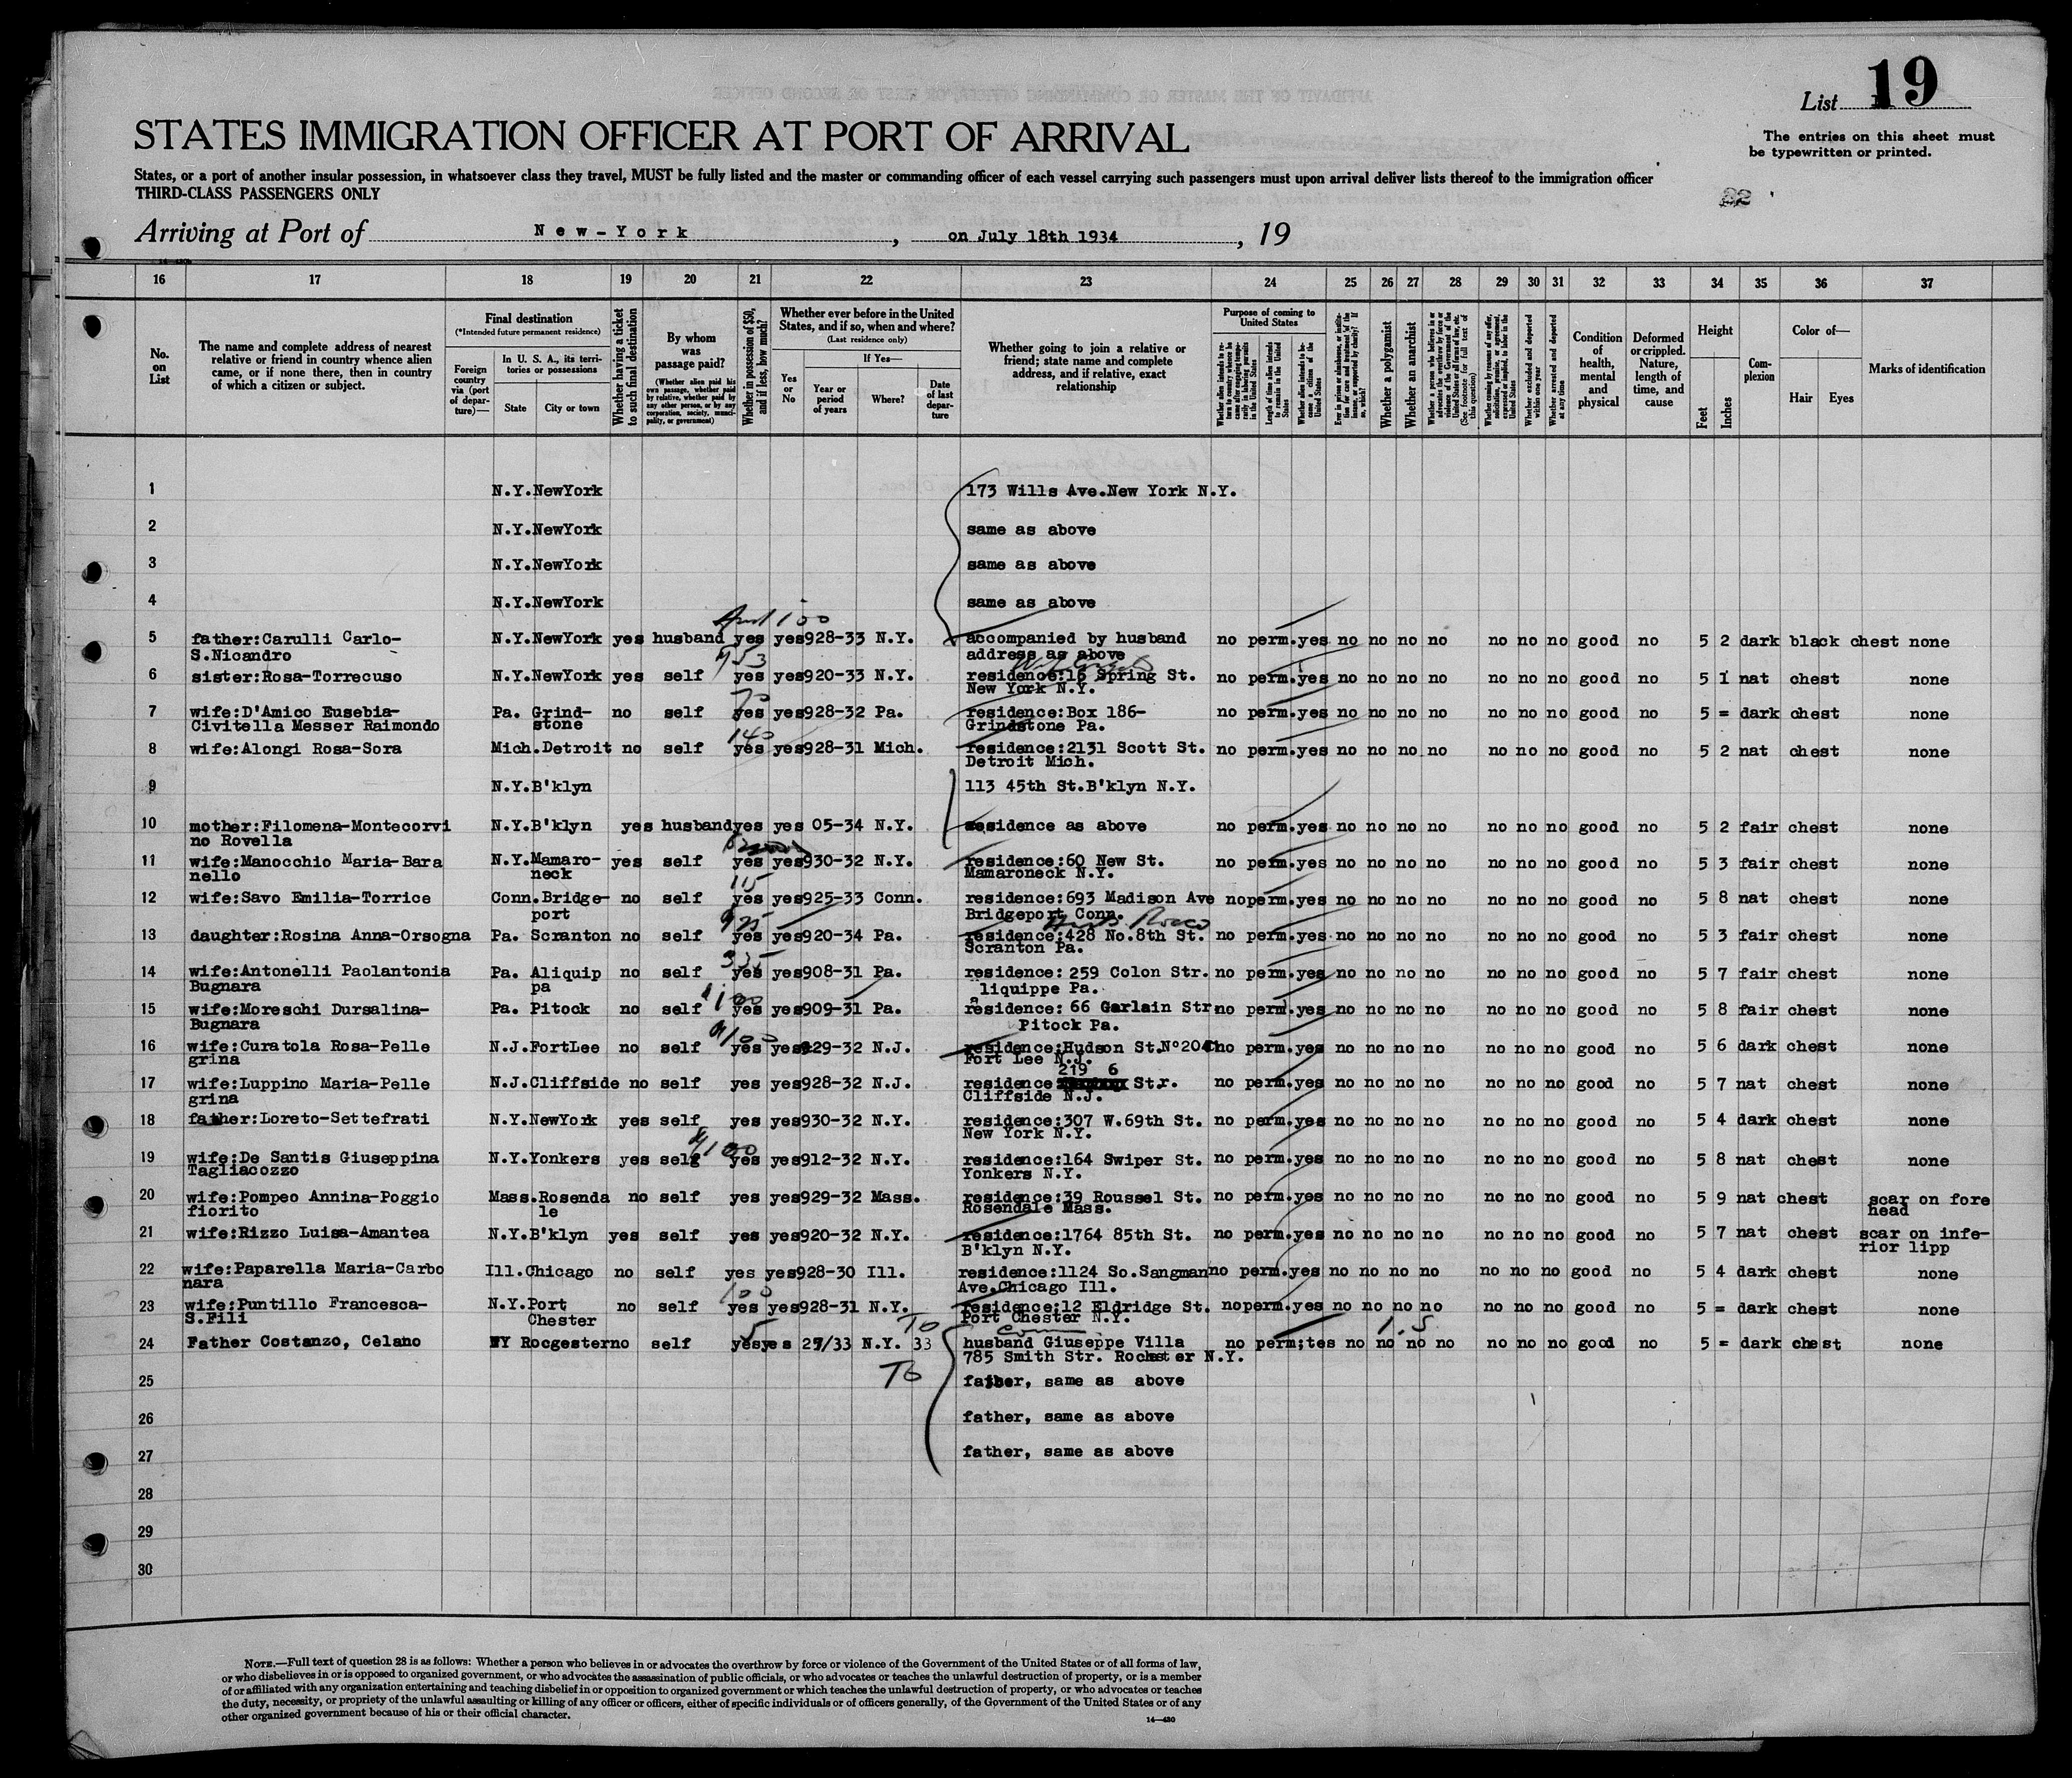 List 19
STATES IMMIGRATION OFFICER AT PORT OF ARRIVAL
The entries on this sheet must
be typewritten or printed.
States, or a port of another insular possession, in whatsoever class they travel, MUST be fully listed and the master or commanding officer of each vessel carrying such passengers must upon arrival deliver lists thereof to the immigration officer
THIRD-CLASS PASSENGERS ONLY
22
Arriving at Port of New-York, on July 18th 1934, 19
16 17 18 19 20 21 22 23 24 25 26 27 28 29 30 31 32 33 34 35 36 37
No. on List
The name and complete address of nearest relative or friend in country whence alien came, or if none there, then in country of which a citizen or subject.
Final destination
(*Intended future permanent residence)
Foreign country via (port of departure)—
In U. S. A., its territories or possessions
State
City or town
Whether having a ticket to such final destination
By whom was passage paid?
(Whether alien paid his own passage, whether paid by relative, whether paid by any other person, or by any corporation, society, municipality, or government)
Whether in possession of $50, and if less, how much?
Whether ever before in the United States, and if so, when and where?
(Last residence only)
If Yes—
Yes or No
Year or period of years
Where?
Date of last departure
Whether going to join a relative or friend; state name and complete address, and if relative, exact relationship
Purpose of coming to United States
Length of time alien intends to remain in the United States
Whether alien intends to become a citizen of the United States
Whether a polygamist
Whether an anarchist
Whether excluded and deported within one year
Whether arrested and deported at any time
Condition of health, mental and physical
Deformed or crippled. Nature, length of time, and cause
Height
Feet
Inches
Complexion
Color of—
Hair
Eyes
Marks of identification
1 N.Y. NewYork 173 Wills Ave.New York N.Y.
2 N.Y. NewYork same as above
3 N.Y. NewYork same as above
4 N.Y. NewYork same as above
100
5 father:Carulli Carlo- N.Y. NewYork yes husband yes yes 928-33 N.Y. accompanied by husband no perm. yes no no no no no no no good no 5 2 dark black chest none
S.Nicandro address as above
6 sister:Rosa-Torrecuso N.Y. NewYork yes self yes yes 920-33 N.Y. residence:16 Spring St. no perm. yes no no no no no no no good no 5 1 nat chest none
New York N.Y.
70
7 wife:D'Amico Eusebia- Pa. Grind- no self yes yes 928-32 Pa. residence:Box 186- no perm. yes no no no no no no no good no 5 = dark chest none
Civitella Messer Raimondo stone Grindstone Pa.
140
8 wife:Alongi Rosa-Sora Mich. Detroit no self yes yes 928-31 Mich. residence:2131 Scott St. no perm. yes no no no no no no no good no 5 2 nat chest none
Detroit Mich.
9 N.Y. B'klyn 113 45th St.B'klyn N.Y.
10 mother:Filomena-Montecorvi N.Y. B'klyn yes husband yes yes 05-34 N.Y. residence as above no perm. yes no no no no no no no good no 5 2 fair chest none
no Rovella
11 wife:Manocchio Maria-Bara N.Y. Mamaro- yes self yes yes 930-32 N.Y. residence:60 New St. no perm. yes no no no no no no no good no 5 3 fair chest none
nello neck Mamaroneck N.Y.
115
12 wife:Savo Emilia-Torrice Conn. Bridge- no self yes yes 925-33 Conn. residence:693 Madison Ave no perm. yes no no no no no no no good no 5 8 nat chest none
port Bridgeport Conn.
13 daughter:Rosina Anna-Orsogna Pa. Scranton no self yes yes 920-34 Pa. residence:428 No.8th St. no perm. yes no no no no no no no good no 5 3 fair chest none
Scranton Pa.
335
14 wife:Antonelli Paolantonia Pa. Aliquip no self yes yes 908-31 Pa. residence: 259 Colon Str. no perm. yes no no no no no no no good no 5 7 fair chest none
Bugnara pa liquippe Pa.
15 wife:Moreschi Dursalina- Pa. Pitock no self yes yes 909-31 Pa. residence: 66 Garlain Str. no perm. yes no no no no no no no good no 5 8 fair chest none
Bugnara Pitock Pa.
16 wife:Curatola Rosa-Pelle N.J. FortLee no self yes yes 929-32 N.J. residence:Hudson St.N°204 no perm. yes no no no no no no no good no 5 6 dark chest none
grina Fort Lee N.J.
219 6
17 wife:Luppino Maria-Pelle N.J. Cliffside no self yes yes 928-32 N.J. residence Str. no perm. yes no no no no no no no good no 5 7 nat chest none
grina Cliffside N.J.
18 father:Loreto-Settefrati N.Y. NewYork yes self yes yes 930-32 N.Y. residence:307 W.69th St. no perm. yes no no no no no no no good no 5 4 dark chest none
New York N.Y.
100
19 wife:De Santis Giuseppina N.Y. Yonkers yes self yes yes 912-32 N.Y. residence:164 Swiper St. no perm. yes no no no no no no no good no 5 8 nat chest none
Tagliacozzo Yonkers N.Y.
20 wife:Pompeo Annina-Poggio Mass. Rosenda no self yes yes 929-32 Mass. residence:39 Roussel St. no perm. yes no no no no no no no good no 5 9 nat chest scar on fore
fiorito le Rosendale Mass. head
21 wife:Rizzo Luisa-Amantea N.Y. B'klyn yes self yes yes 920-32 N.Y. residence:1764 85th St. no perm. yes no no no no no no no good no 5 7 nat chest scar on infe-
B'klyn N.Y. rior lipp
22 wife:Paparella Maria-Carbo Ill. Chicago no self yes yes 928-30 Ill. residence:1124 So.Sangman no perm. yes no no no no no no no good no 5 4 dark chest none
nara Ave.Chicago Ill.
100
23 wife:Puntillo Francesca- N.Y. Port no self yes yes 928-31 N.Y. residence:12 Eldridge St. no perm. yes no no no no no no no good no 5 = dark chest none
S.Fili Chester Port Chester N.Y.
5 To
24 Father Costanzo, Celano NY Rocgester no self yes yes 27/33 N.Y. 33 husband Giuseppe Villa no perm;tes no no no no no no no good no 5 = dark chest none
785 Smith Str. Rochester N.Y.
25 To father, same as above
26 father, same as above
27 father, same as above
28
29
30
NOTE.—Full text of question 28 is as follows: Whether a person who believes in or advocates the overthrow by force or violence of the Government of the United States or of all forms of law,
or who disbelieves in or is opposed to organized government, or who advocates the assassination of public officials, or who advocates or teaches the unlawful destruction of property, or is a member
of or affiliated with any organization entertaining and teaching disbelief in or opposition to organized government or which teaches the unlawful destruction of property, or who advocates or teaches
the duty, necessity, or propriety of the unlawful assaulting or killing of any officer or officers, either of specific individuals or of officers generally, of the Government of the United States or of any
other organized government because of his or their official character.
14—430